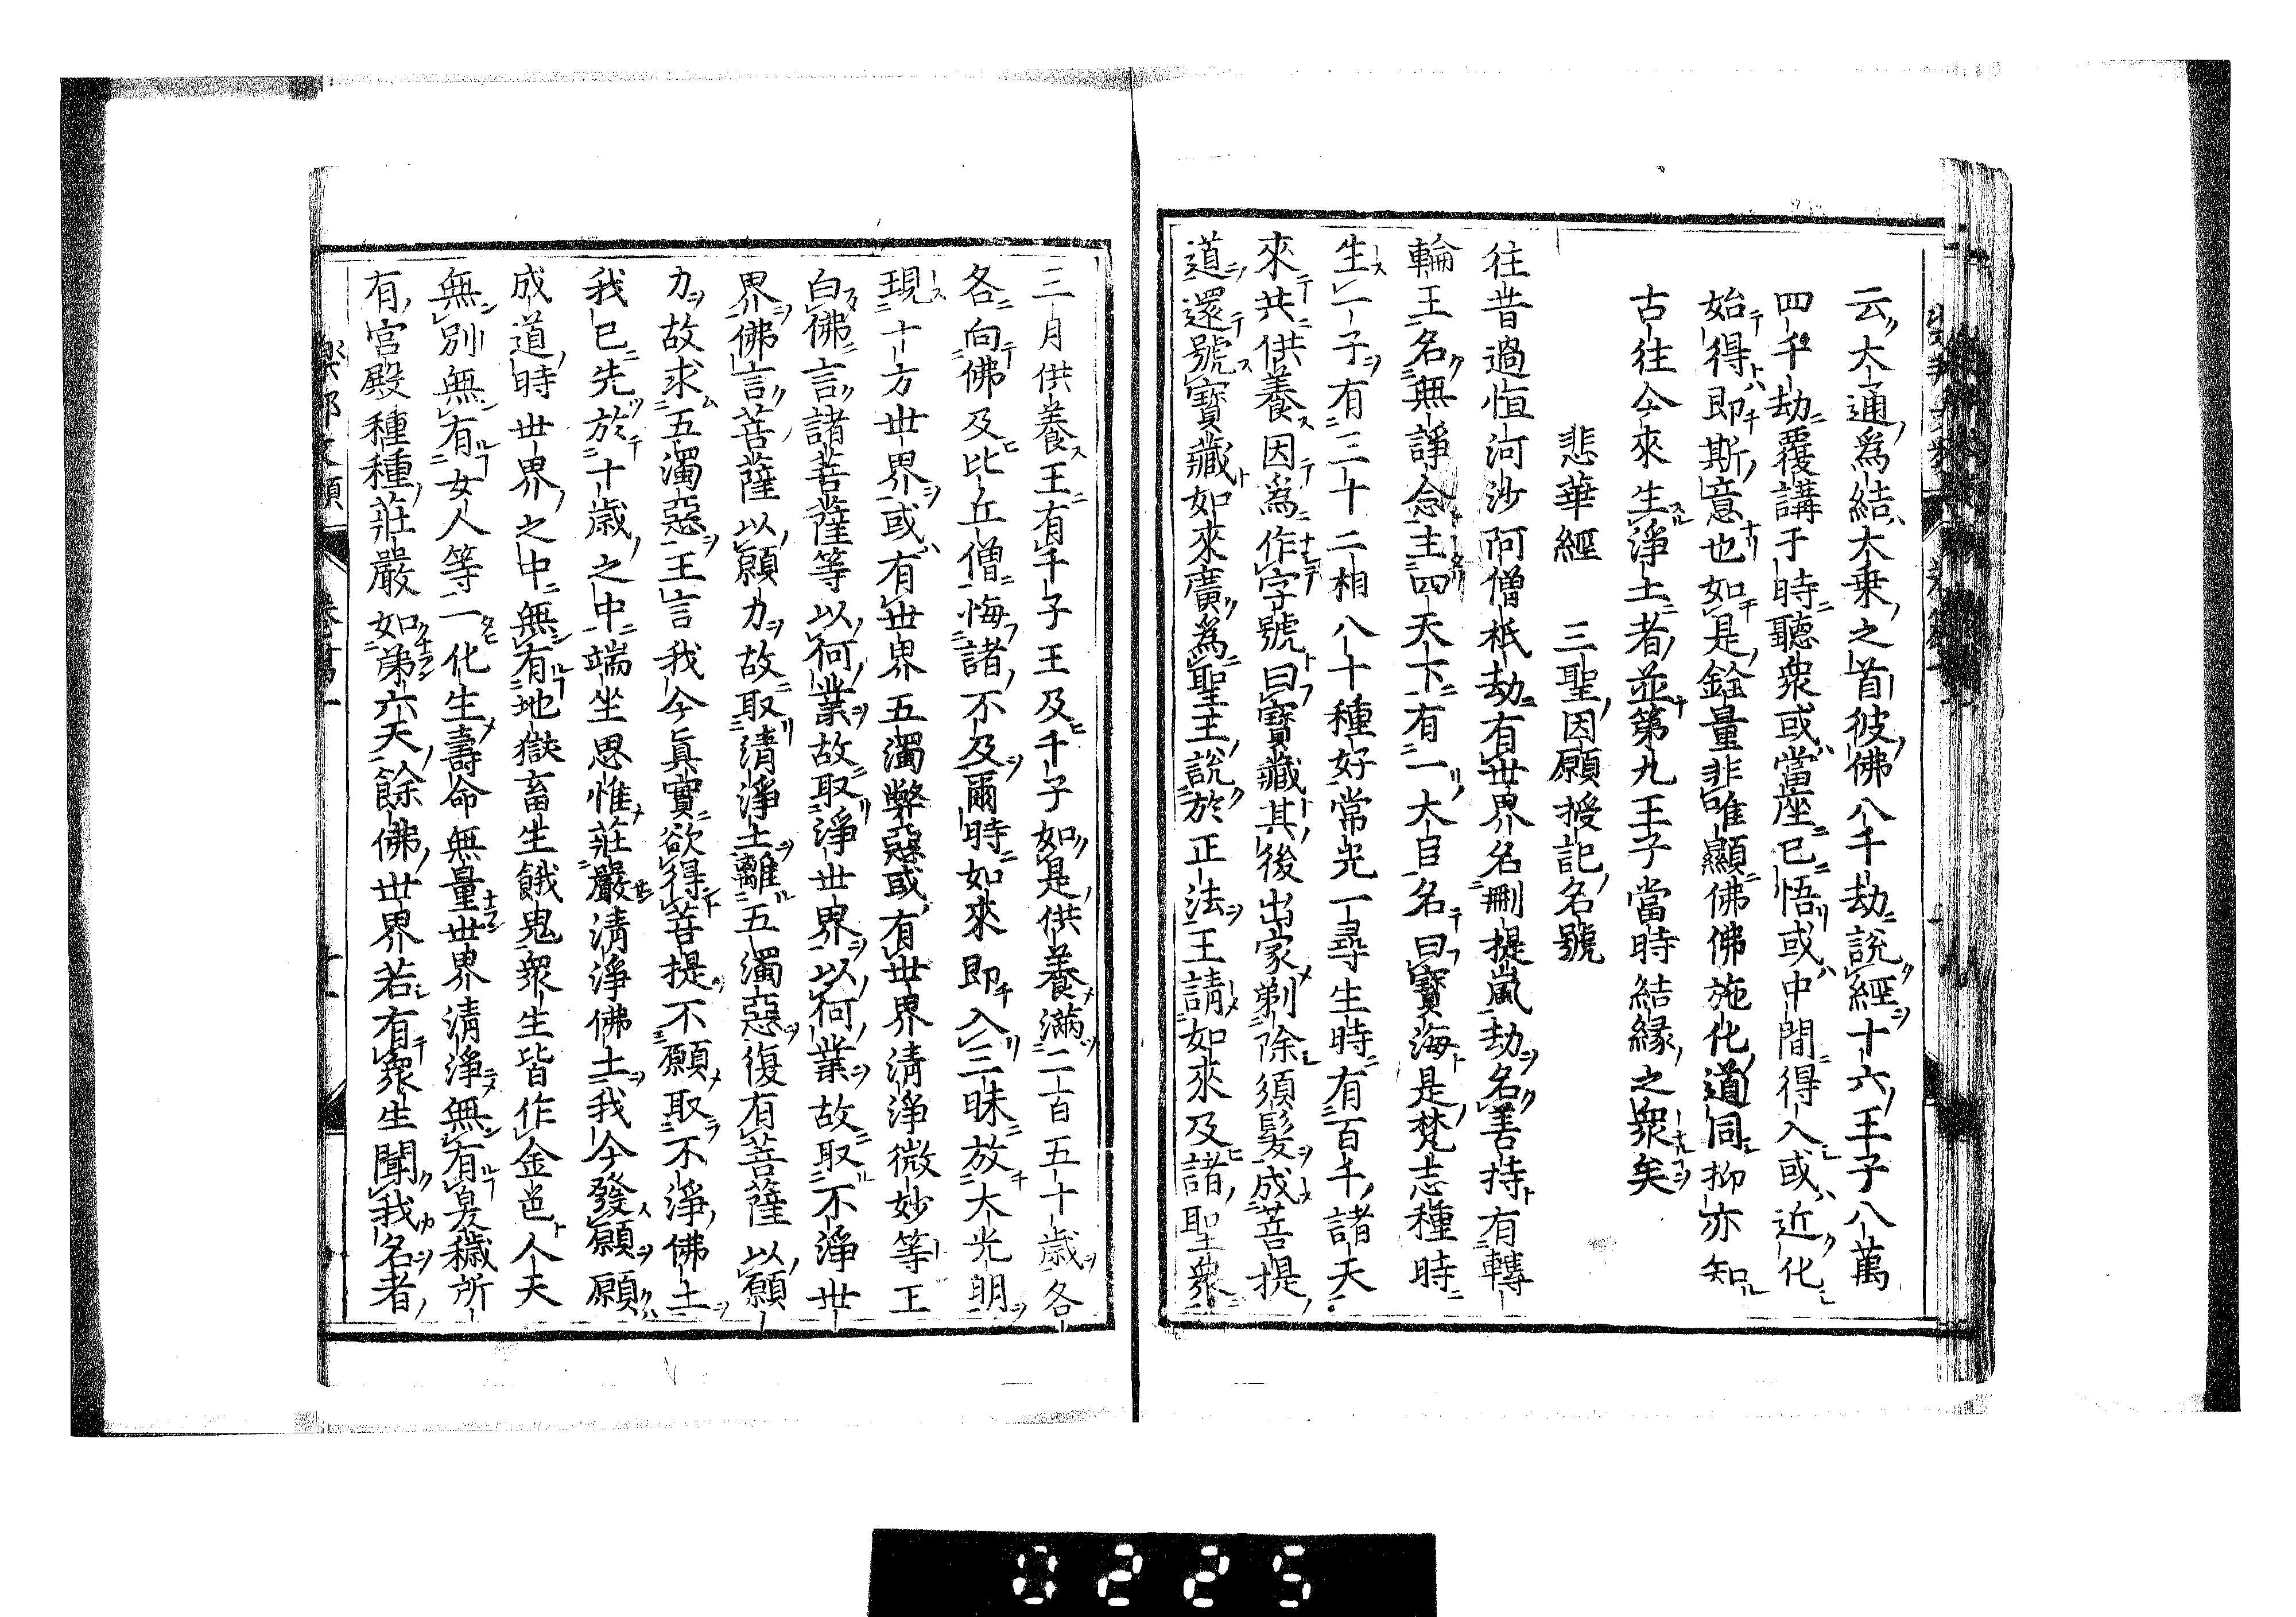 云大通爲結大乗之首彼佛八千劫說經十六王子八萬
四千劫覆講于時聽衆或當座已悟或中間得入或近化
始得即斯意也如是銓量非唯顯佛佛施化道同抑亦知
古往今來生淨土者並第九王子當時結縁之衆矣
悲華經　三聖因願授記名號
往昔過恒河沙阿僧祇劫有世界名刪提嵐劫名善持有轉
輪王名無諍念主四天下有一大臣名曰寶海是梵志種時
生一子有三十二相八十種好常光一尋生時有百千諸天
來共供養因爲作字號曰寶藏其後出家剃除須髮成菩提
道還號寶藏如來廣爲聖王說於正法王請如來及諸聖衆
三月供養王有千子王及千子如是供養滿二百五十歲各
各向佛及比丘僧悔諸不及爾時如來即入三昧放大光明
現十方世界或有世界五濁弊惡或有世界清淨微妙等王
白佛言諸菩薩等以何業故取淨世界以何業故取不淨世
界佛言菩薩以願力故取清淨土離五濁惡復有菩薩以願
力故求五濁惡王言我今眞實欲得菩提不願取不淨佛土
我已先於十歲之中端坐思惟莊嚴淸淨佛土我今發願願
成道時世界之中無有地獄畜生餓鬼衆生皆作金色人天
無別無有女人等一化生壽命無量世界淸淨無有臭穢所
有宮殿種種莊嚴如第六天餘佛世界若有衆生聞我名者
樂邦文類　卷第一
0225